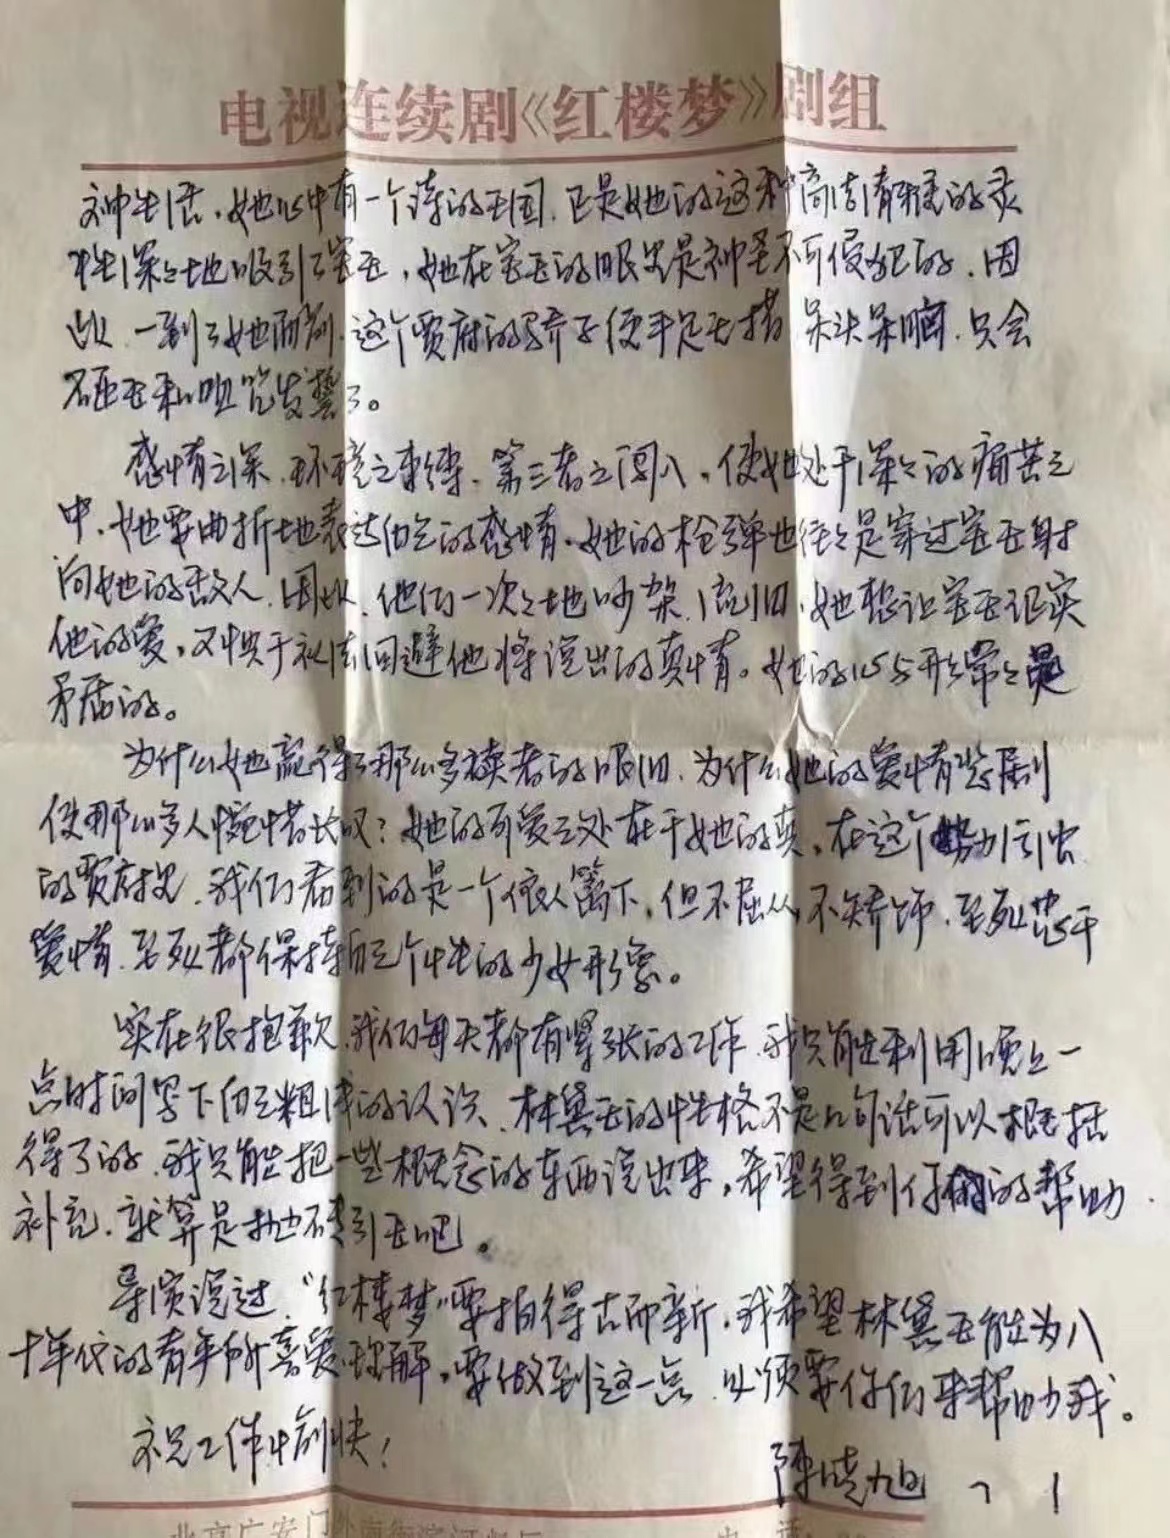 电视连续剧《红楼梦》剧组
神生活，她心中有一个诗的王国，正是她的这种高洁清雅的灵
性深深地吸引了宝玉，她在宝玉的眼里是神圣不可侵犯的，因
此，一到了她面前，这个贾府的骄子便手足无措 呆头呆脑，只会
砸玉和咀咒发誓了。
感情之深，环境之束缚，第三者之闯入，使她处于深深的痛苦之
中，她要曲折地表达自己的感情，她的枪弹也往往是穿过宝玉射
向她的敌人，因此，他们一次次地吵架，流泪，她想让宝玉证实
他的爱，又惧于礼法回避他将说出的真情。她的心与形常常是
矛盾的。
为什么她赢得了那么多读者的眼泪，为什么她的爱情悲剧
使那么多人惋惜长叹？她的可爱之处在于她的真，在这个势力
的贾府里，我们看到的是一个依人篱下，但不屈从，不矫饰，至死忠于
爱情，至死都保持自己个性的少女形象。
实在很抱歉，我们每天都有紧张的工作，我只能利用晚上一
点时间写下自己粗浅的认识，林黛玉的性格不是几句话可以概括
得了的，我只能把一些概念的东西说出来，希望得到你们的帮助，
补充，就算是抛砖引玉吧。
导演说过，“红楼梦”要拍得古而新，我希望林黛玉能为八
十年代的青年所喜爱、理解，要做到这一点，必须要你们来帮助我。
祝工作愉快！
陈晓旭 7 1
北京广安门外南街滨河
电 话